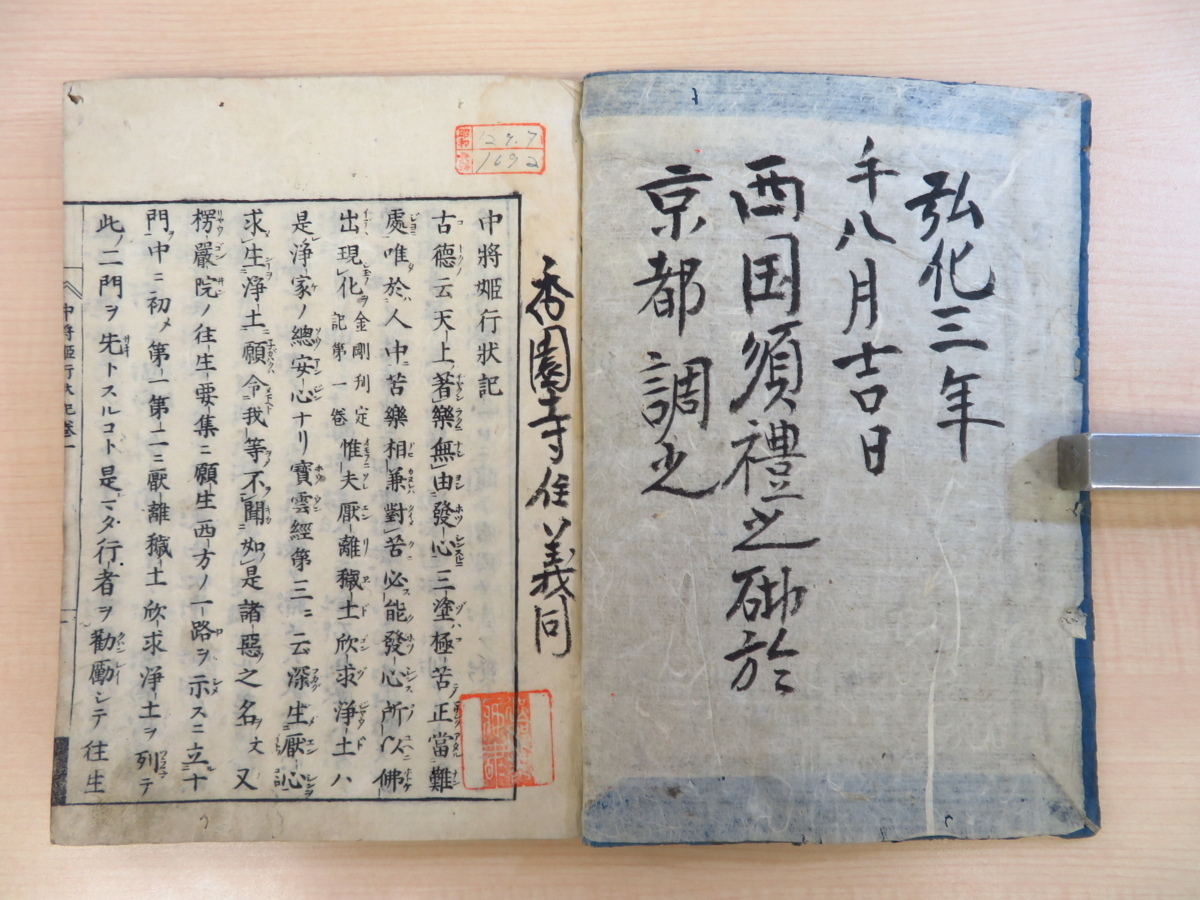 弘化三年
午八月吉日
西国須禮之砌於
京都調之
香園寺住義同
昭和 12.9.7
1692
中將姬行狀記
古德云天上著樂無由發心三塗極苦正當難
處唯於人中苦樂相兼對苦必能發心所以佛
出現化金剛刊定記第一卷惟夫厭離穢土欣求淨土ハ
是淨家ノ總安心ナリ寶雲經第三ニ云深生厭心
求生淨土願令我等不聞如是諸惡之名文又
楞嚴院ノ往生要集ニ願生西方ノ一路ヲ示スニ立十
門中ニ初メ第一第二ニ厭離穢土欣求淨土ヲ列テ
此ノ二門ヲ先トスルコト是マタ行者ヲ勸勵シテ往生
中將姬行狀記卷一